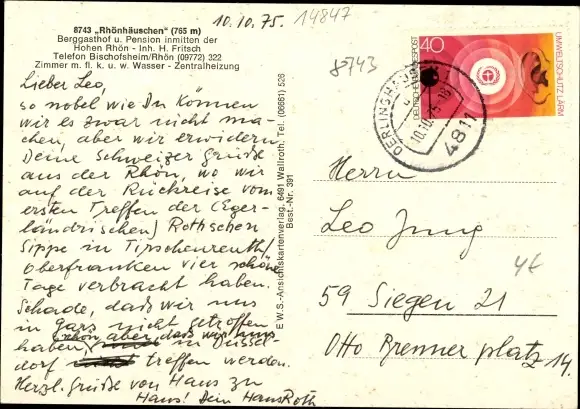 10.10.75. 14847
8743 „Rhönhäuschen" (765 m)
Berggasthof u. Pension inmitten der
Hohen Rhön - Inh. H. Fritsch
Telefon Bischofsheim/Rhön (09772) 322
Zimmer m. fl. k. u. w. Wasser - Zentralheizung
Lieber Leo,
so nobel wie Du können
wir es zwar nicht ma-
chen, aber wir erwidern
Deine Schweizer Grüße
aus der Rhön, wo wir
auf der Rückreise vom
ersten Treffen der (Eger-
ländrischen) Rothschen
Sippe in Tirschenreuth/
Oberfranken vier schöne
Tage verbracht haben.
Schade, daß wir uns
in Gars nicht getroffen
haben, schön aber, daß wir uns
in Düssel-
dorf treffen werden.
Herzl. Grüße von Haus zu
Haus! Dein Hans Roth
E.W.S.-Ansichtskartenverlag, 6491 Wallroth, Tel. (06661) 526
Best.-Nr. 391
8743
DEUTSCHE BUNDESPOST
40
UMWELTSCHUTZ: LÄRM
OERLINGHAUSEN
10.10.75-18
4811
Herrn
Leo Jung
4€
59 Siegen 21
Otto Brenner platz 14.